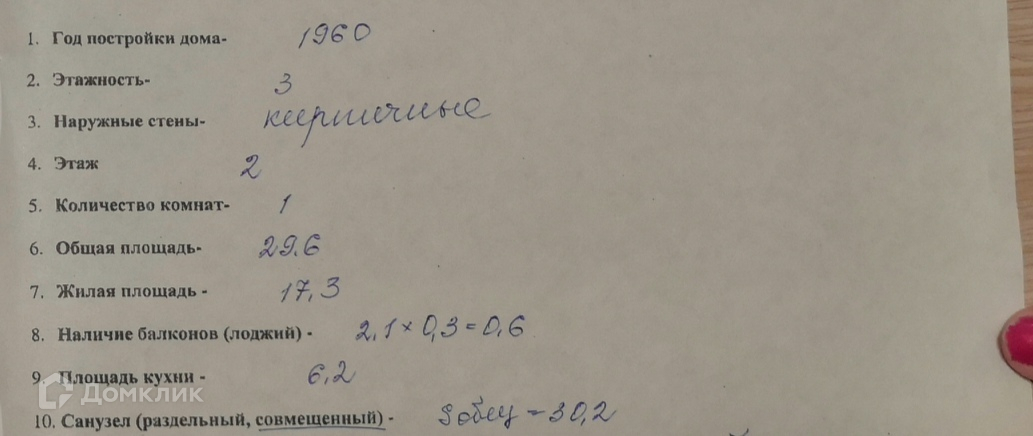 1. Год постройки дома- 1960
2. Этажность- 3
3. Наружные стены- кирпичные
4. Этаж 2
5. Количество комнат- 1
6. Общая площадь- 29.6
7. Жилая площадь - 17,3
8. Наличие балконов (лоджий) - 2,1 × 0,3 = 0,6
9. Площадь кухни - 6,2
Домклик
10. Санузел (раздельный, совмещенный) - Sобщ - 30,2